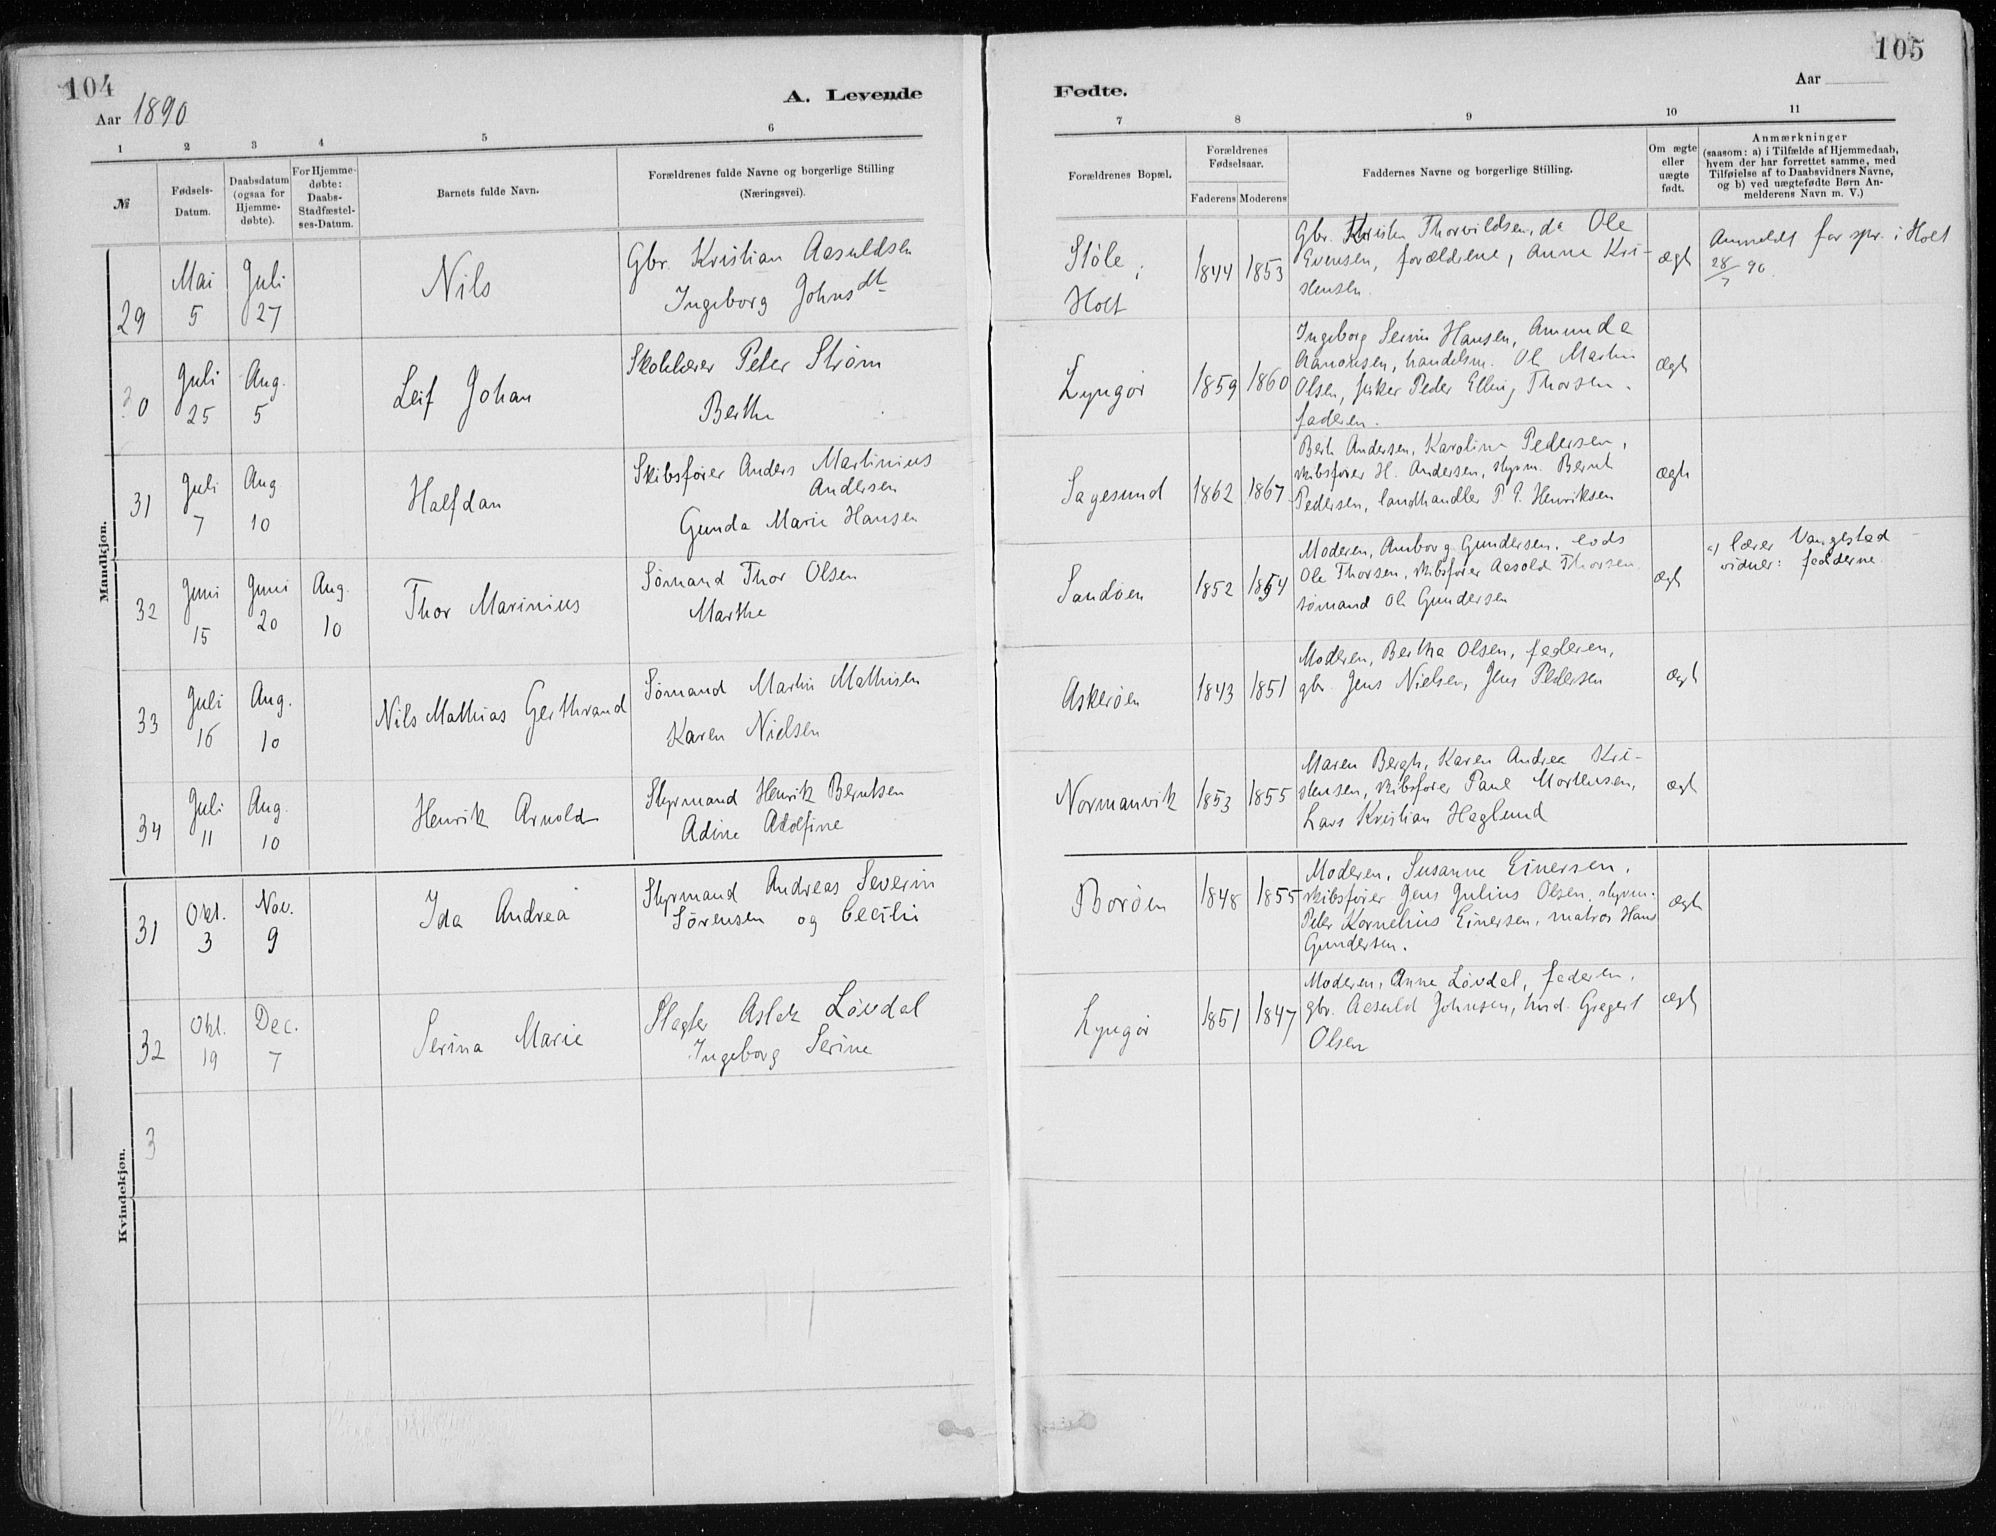 104
Aar 1890
A. Levende
1 2 3 4 5 6
№
Fødsels-
Datum.
Daabsdatum
(ogsaa for
Hjemme-
døbte).
For Hjemme-
døbte:
Daabs-
Stadfæstel-
ses-Datum.
Barnets fulde Navn.
Forældrenes fulde Navne og borgerlige Stilling
(Næringsvei).
Mandkjøn.
29
Mai
5
Juli
27
Nils
Gbr. Kristian Aasuldsen
Ingeborg Johnsdt
30
Juli
25
Aug.
5
Leif Johan
Skolelærer Peter Strøm
Berthe
31
Juli
7
Aug
10
Halfdan
Skibsfører Anders Martinius
Andersen
Gunda Marie Hansen
32
Juni
15
Juni
20
Aug.
10
Thor Marinius
Sømand Thor Olsen
Marthe
33
Juli
16
Aug.
10
Nils Mathias Gerthrand
Sømand Martin Mathisen
Karen Nielsen
34
Juli
11
Aug.
10
Henrik Arnold
Styrmand Henrik Berntsen
Adine Adolfine
Kvindekjøn.
31
Okt.
3
Nov.
9
Ida Andrea
Styrmand Andreas Severin
Sørensen og Cecilie
32
Okt.
19
Dec.
7
Serina Marie
Slagter Aslak Løvdal
Ingeborg Serine
3
105
Aar
Fødte.
7 8 9 10 11
Forældrenes Bopæl.
Forældrenes
Fødselsaar.
Faderens Moderens
Faddernes Navne og borgerlige Stilling.
Om ægte
eller
uægte
født.
Anmærkninger
(saasom: a) i Tilfælde af Hjemmedaab,
hvem der har forrettet samme, med
Tilføielse af to Daabsvidners Navne,
og b) ved uægtefødte Børn An-
melderens Navn m. V.)
Støle i
Holt
1844 1853
Gbr. Kristen Thorvildsen, do Ole
Evensen, forældrene, Anne Kri-
stensen.
ægt
Anmeldt for spr. i Holt
28/7 90.
Lyngør
1859 1860
Ingeborg Serine Hansen, Amunda
Aanonsen, handelsm. Ole Martin
Olsen, fisker Peder Elling Thorsen.
faderen.
ægt
Sagesund
1862 1867
Berte Andersen, Karoline Pedersen,
skibsfører H. Andersen, styrm. Bernt
Pedersen, landhandler P. E. Henriksen
ægte
Sandøen
1852 1854
Moderen, Amborg Gundersen, lods
Ole Thorsen, skibsfører Aasold Thorsen
sømand Ole Gundersen
ægt
a) lærer Vangestad
vidner: fadderne
Askerøen
1843 1851
Moderen, Bertha Olsen, faderen,
gbr. Jens Nielsen, Jens Pedersen
ægt
Normanvik
1853 1855
Maren Bergh, Karen Andrea Kri-
stensen, skibsfører Paul Mortensen,
Lars Kristian Haglund
ægt
Borøen
1848 1855
Moderen, Susanne Einersen,
skibsfører Jens Julius Olsen, styrm.
Peter Kornelius Einersen, matros Hans
Gundersen.
ægt
Lyngør
1851 1847
Moderen, Anne Løvdal, faderen,
gbr. Aasuld Johnsen, Gregert
Olsen
ægt